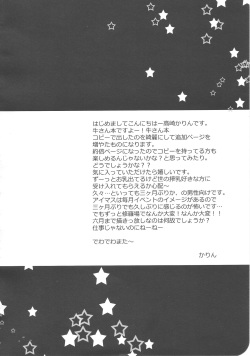 はじめましてこんにちはー高崎かりんです。
牛さん本ですよー!牛さん本
コピーで出したのを綺麗にして追加ページを
増やたものになります。
約倍ページになったのでコピーを持ってる方も
楽しめるんじゃないかな?と思ってみたり。
どうでしょうかな??
気に入っていただけたら嬉しいです。
ずーっとお乳出てるけど世の搾乳好きな方に
受け入れてもらえるか心配〜
久々…といっても三ヶ月ぶりか、の男性向けです。
アイマスは毎月イベントのイメージがあるので
三ヶ月ぶりでも久しぶりに感じるのが怖いです…
でもずっと修羅場でなんか大変!なんか大変!!
六月まで描きっ放しなのは何故でしょうか?
仕事じゃないのにねーねー
でわでわまた〜
かりん